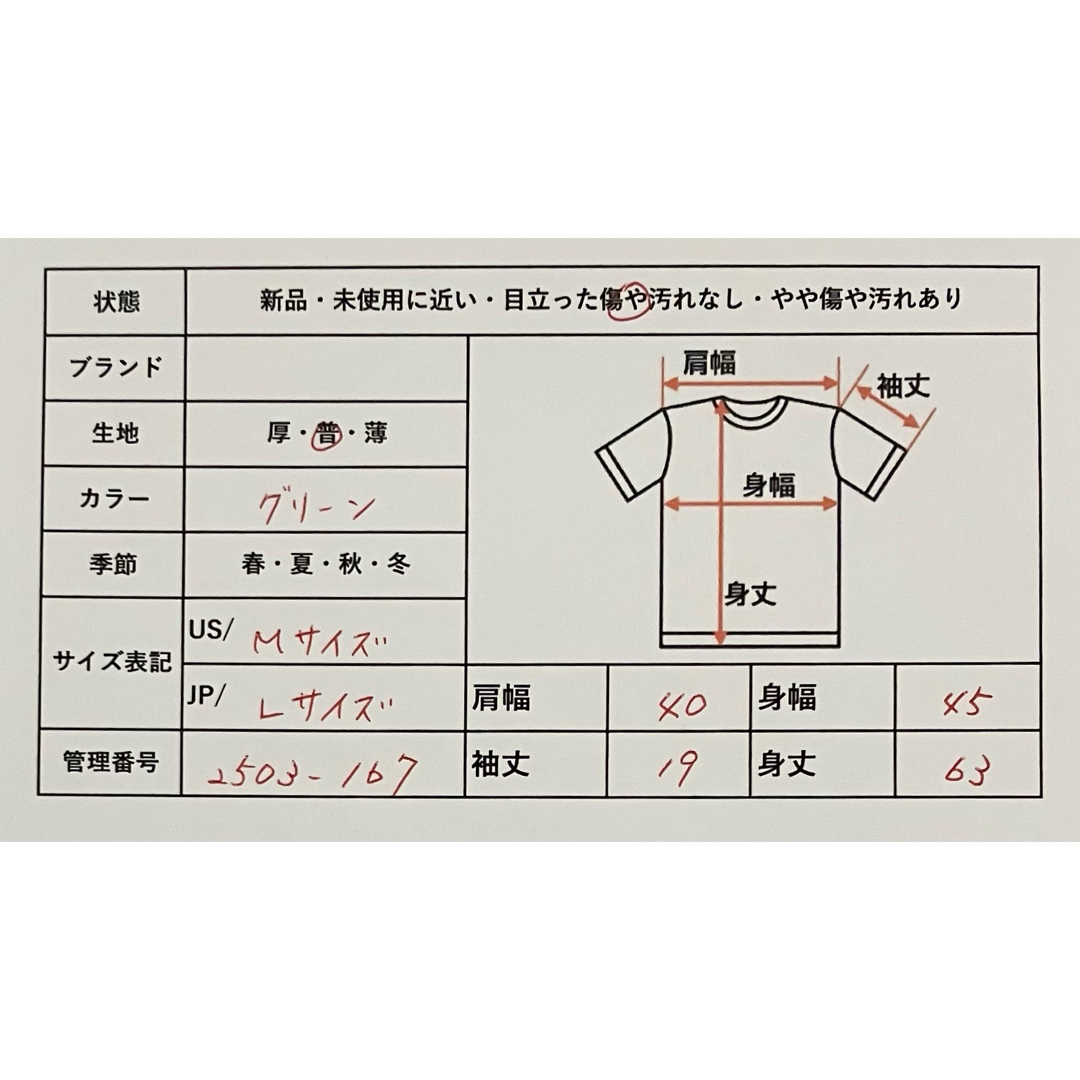 状態 新品・未使用に近い・目立った傷や汚れなし・やや傷や汚れあり
ブランド
生地 厚・普・薄
カラー グリーン
季節 春・夏・秋・冬
肩幅
袖丈
身幅
身丈
サイズ表記
US/ Mサイズ
JP/ Lサイズ 肩幅 40 身幅 45
管理番号 2503-167 袖丈 19 身丈 63